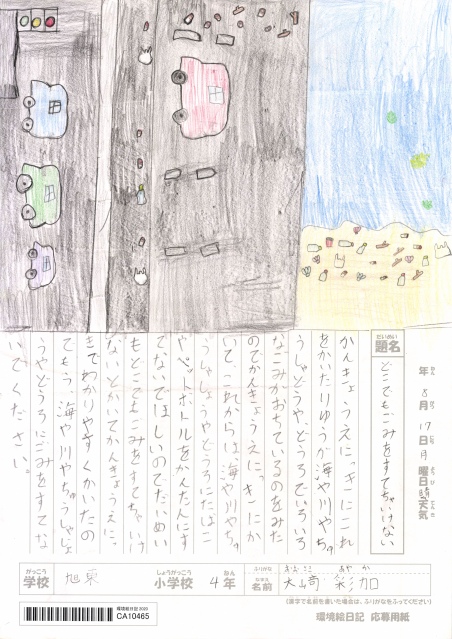 だいめい
題名
どこでもごみをすてちゃいけない
年 8月 17日 月曜日 天気 晴
かんきょうえにっきにこれ
をかいたりゆうが海や川やちゅ
うしゃじょうや、どうろでいろいろ
なごみがおちているのをみた
のでかんきょうえにっきにか
いて、これからは海や川やちゅ
うしゃじょうやどうろにたばこ
やペットボトルをかんたんにす
てないでほしいのでだいめい
もどこでもごみをすてちゃいけ
ないとかいてかんきょうえに
きでわかりやすくかいたの
でもう、海や川やちゅうしゃじょ
うやどうろにごみをすてな
いでください。
がっこう
学校
旭東
しょうがっこう
小学校
4年
ねん
ふりがな
あやか
なまえ
名前
大崎 彩加
(漢字で名前を書いた場合は、ふりがなをふってください)
環境絵日記 2020
CA10465
環境絵日記 応募用紙